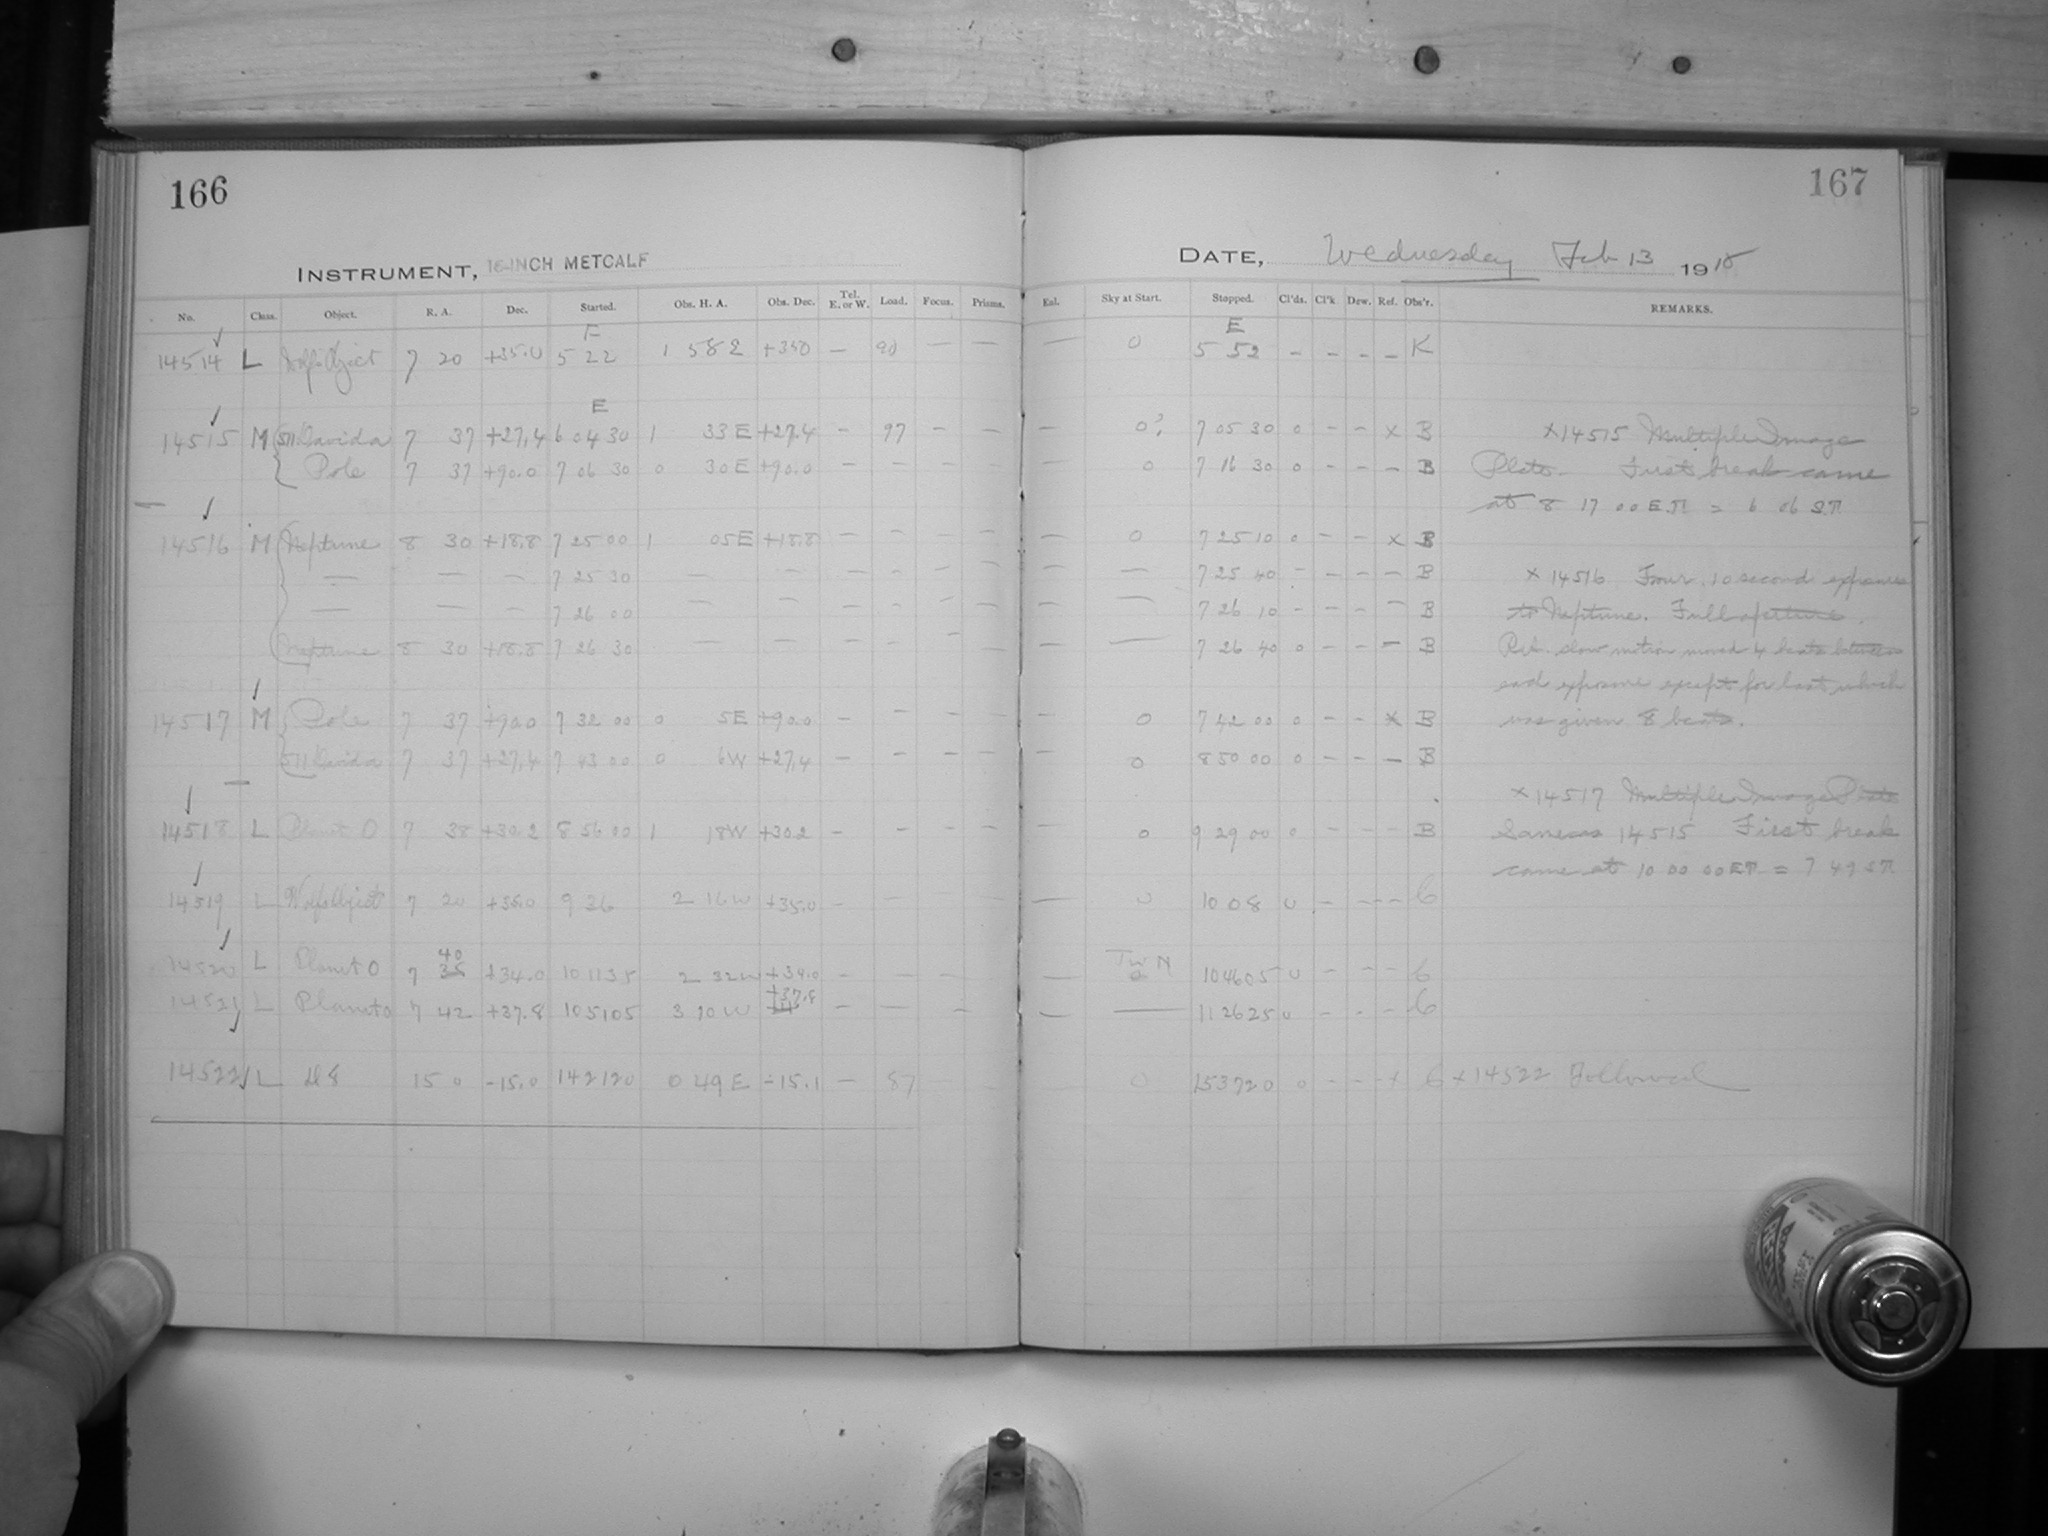 166
INSTRUMENT, 16-INCH METCALF
No. Class. Object. R. A. Dec. Started. Obs. H. A. Obs. Dec. Tel. E. or W. Load. Focus. Prisms.
14514 L Wolf Object 7 20 +35.0 E 5 22 1 58 E +35.0 — 90 — —
E
14515 M 511 Davida 7 37 +27.4 6 04 30 1 33 E +27.4 — 97 — —
Pole 7 37 +90.0 7 06 30 0 30 E +90.0 — — — —
14516 M Neptune 8 30 +18.8 7 25 00 1 05 E +18.8 — — — —
— — — 7 25 30 — — — — — —
— — — 7 26 00 — — — — — —
Neptune 8 30 +18.8 7 26 30 — — — — — —
14517 M Pole 7 37 +90.0 7 32 00 0 5 E +90.0 — — — —
511 Davida 7 37 +27.4 7 43 00 0 6 W +27.4 — — — —
14518 L Planet O 7 38 +30.2 8 56 00 1 18 W +30.2 — — — —
14519 L Wolf Object 7 20 +35.0 9 36 2 16 W +35.0 — — — —
14520 L Planet O 7 40 +34.0 10 11 35 2 32 W +34.0 — — — —
14521 L Planet O 7 42 +37.8 10 51 05 3 10 W +37.8 — — — —
14522 L 15 0 -15.0 14 21 20 0 49 E -15.1 — 87
167
DATE, Wednesday Feb 13 1918
Enl. Sky at Start. Stopped. Cl'ds. Cl'k Dew. Ref. Obs'r. REMARKS.
E
— 0 5 52 — — — — K
— 0 7 05 30 0 — — x B x 14515 Multiple Image
— 0 7 16 30 0 — — — B Plate. First break came
at 8 17 00 E.T. = 6 06 S.T.
— 0 7 25 10 0 — — x B
— — 7 25 40 — — — — B x 14516 Four 10 second exposures
— — 7 26 10 — — — — B to Neptune. Full aperture.
— — 7 26 40 0 — — — B slow motion moved 4 beats between
each exposure except for last which
— 0 7 42 00 0 — — x B was given 8 beats.
— 0 8 50 00 0 — — — B
x 14517 Multiple Image Plate
— 0 9 29 00 0 — — — B Same as 14515 First break
came at 10 00 00 E.T. = 7 49 S.T.
— 0 10 08 0 — — — G
— Tw N 0 10 46 05 0 — — — G
— — 11 26 25 0 — — — G
0 15 37 20 0 — — x G x 14522 Followed